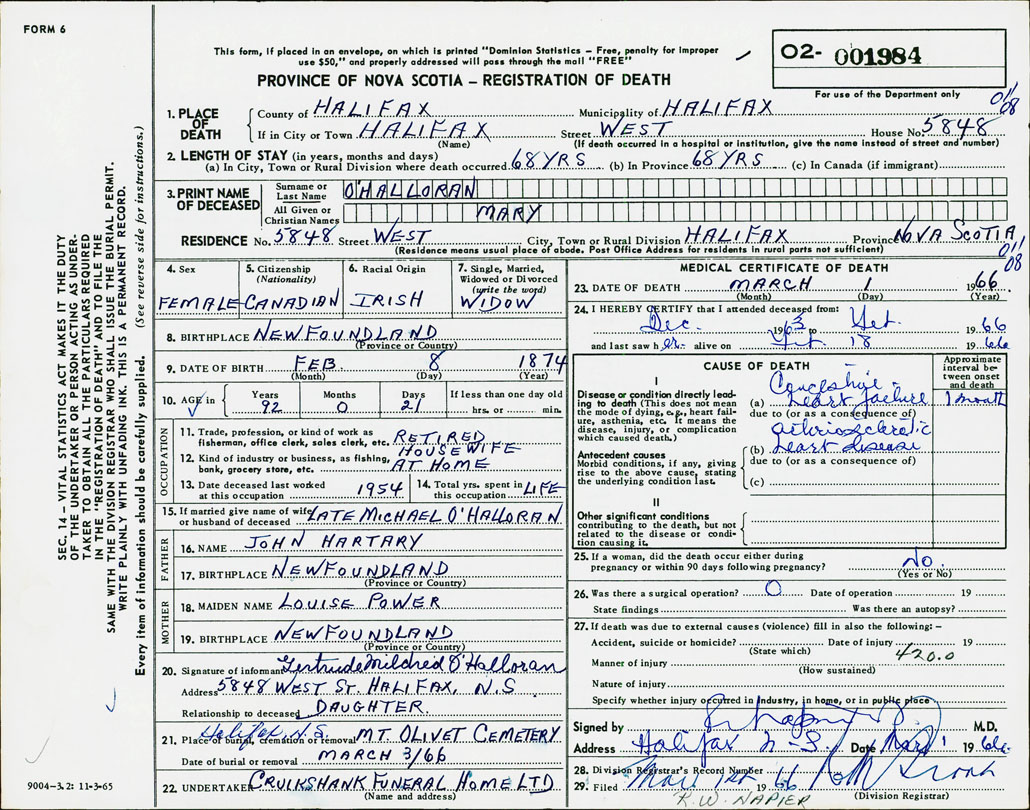 FORM 6
This form, if placed in an envelope, on which is printed "Dominion Statistics – Free, penalty for improper
use $50," and properly addressed will pass through the mail "FREE"
PROVINCE OF NOVA SCOTIA – REGISTRATION OF DEATH
02- 001984
For use of the Department only
011
08
1. PLACE OF DEATH
County of HALIFAX Municipality of HALIFAX
If in City or Town HALIFAX Street WEST House No. 5848
(Name) (If death occurred in a hospital or institution, give the name instead of street and number)
2. LENGTH OF STAY (in years, months and days)
(a) In City, Town or Rural Division where death occurred 68 YRS (b) In Province 68 YRS (c) In Canada (if immigrant)
3. PRINT NAME OF DECEASED
Surname or Last Name O'HALLORAN
All Given or Christian Names MARY
RESIDENCE No. 5848 Street WEST City, Town or Rural Division HALIFAX Province NOVA SCOTIA
(Residence means usual place of abode. Post Office Address for residents in rural parts not sufficient)
011
08
4. Sex FEMALE
5. Citizenship (Nationality) CANADIAN
6. Racial Origin IRISH
7. Single, Married, Widowed or Divorced (write the word) WIDOW
8. BIRTHPLACE NEWFOUNDLAND
(Province or Country)
9. DATE OF BIRTH FEB. 8 1874
(Month) (Day) (Year)
10. AGE in Years 92 Months 0 Days 21 If less than one day old hrs. or min.
OCCUPATION
11. Trade, profession or kind of work as fisherman, office clerk, sales clerk, etc. RETIRED HOUSEWIFE
12. Kind of industry or business, as fishing, bank, grocery store, etc. AT HOME
13. Date deceased last worked at this occupation 1954
14. Total yrs. spent in this occupation LIFE
15. If married give name of wife or husband of deceased LATE MICHAEL O'HALLORAN
FATHER
16. NAME JOHN HARTARY
17. BIRTHPLACE NEWFOUNDLAND
(Province or Country)
MOTHER
18. MAIDEN NAME LOUISE POWER
19. BIRTHPLACE NEWFOUNDLAND
(Province or Country)
20. Signature of informant Gertrude Mildred O'Halloran
Address 5848 WEST ST. HALIFAX, N.S.
Relationship to deceased DAUGHTER.
Halifax, N.S.
21. Place of burial, cremation or removal MT OLIVET CEMETERY
Date of burial or removal MARCH 3/66
22. UNDERTAKER CRUIKSHANK FUNERAL HOME LTD
(Name and address)
MEDICAL CERTIFICATE OF DEATH
23. DATE OF DEATH MARCH 1 1966
(Month) (Day) (Year)
24. I HEREBY CERTIFY that I attended deceased from:
Dec. 1963 to 1966
and last saw her alive on 18 1966
CAUSE OF DEATH
Approximate interval between onset and death
I
Disease or condition directly leading to death (This does not mean the mode of dying, e.g., heart failure, asthenia, etc. It means the disease, injury, or complication which caused death.)
(a) Congestive heart failure 1 month
due to (or as a consequence of)
Antecedent causes
Morbid conditions, if any, giving rise to the above cause, stating the underlying condition last.
(b) arteriosclerotic heart disease
due to (or as a consequence of)
(c)
II
Other significant conditions contributing to the death, but not related to the disease or condition causing it.
25. If a woman, did the death occur either during pregnancy or within 90 days following pregnancy? No.
(Yes or No)
26. Was there a surgical operation? O Date of operation 19
State findings Was there an autopsy?
27. If death was due to external causes (violence) fill in also the following: –
Accident, suicide or homicide? Date of injury 19
(State which) 420.0
Manner of injury
(How sustained)
Nature of injury
Specify whether injury occurred in industry, in home, or in public place
Signed by M.D.
Address Halifax N-S. Date Mar 1 1966
28. Division Registrar's Record Number
29. Filed Mar 1st 1966
(Division Registrar)
R.W. NAPIER
SEC. 14 – VITAL STATISTICS ACT MAKES IT THE DUTY
OF THE UNDERTAKER OR PERSON ACTING AS UNDER-
TAKER TO OBTAIN ALL THE PARTICULARS REQUIRED
IN THE "REGISTRATION OF DEATH" AND TO FILE THE
SAME WITH THE DIVISION REGISTRAR WHO SHALL ISSUE THE BURIAL PERMIT.
WRITE PLAINLY WITH UNFADING INK. THIS IS A PERMANENT RECORD.
Every item of information should be carefully supplied. (See reverse side for instructions.)
9004-3.2: 11-3-65